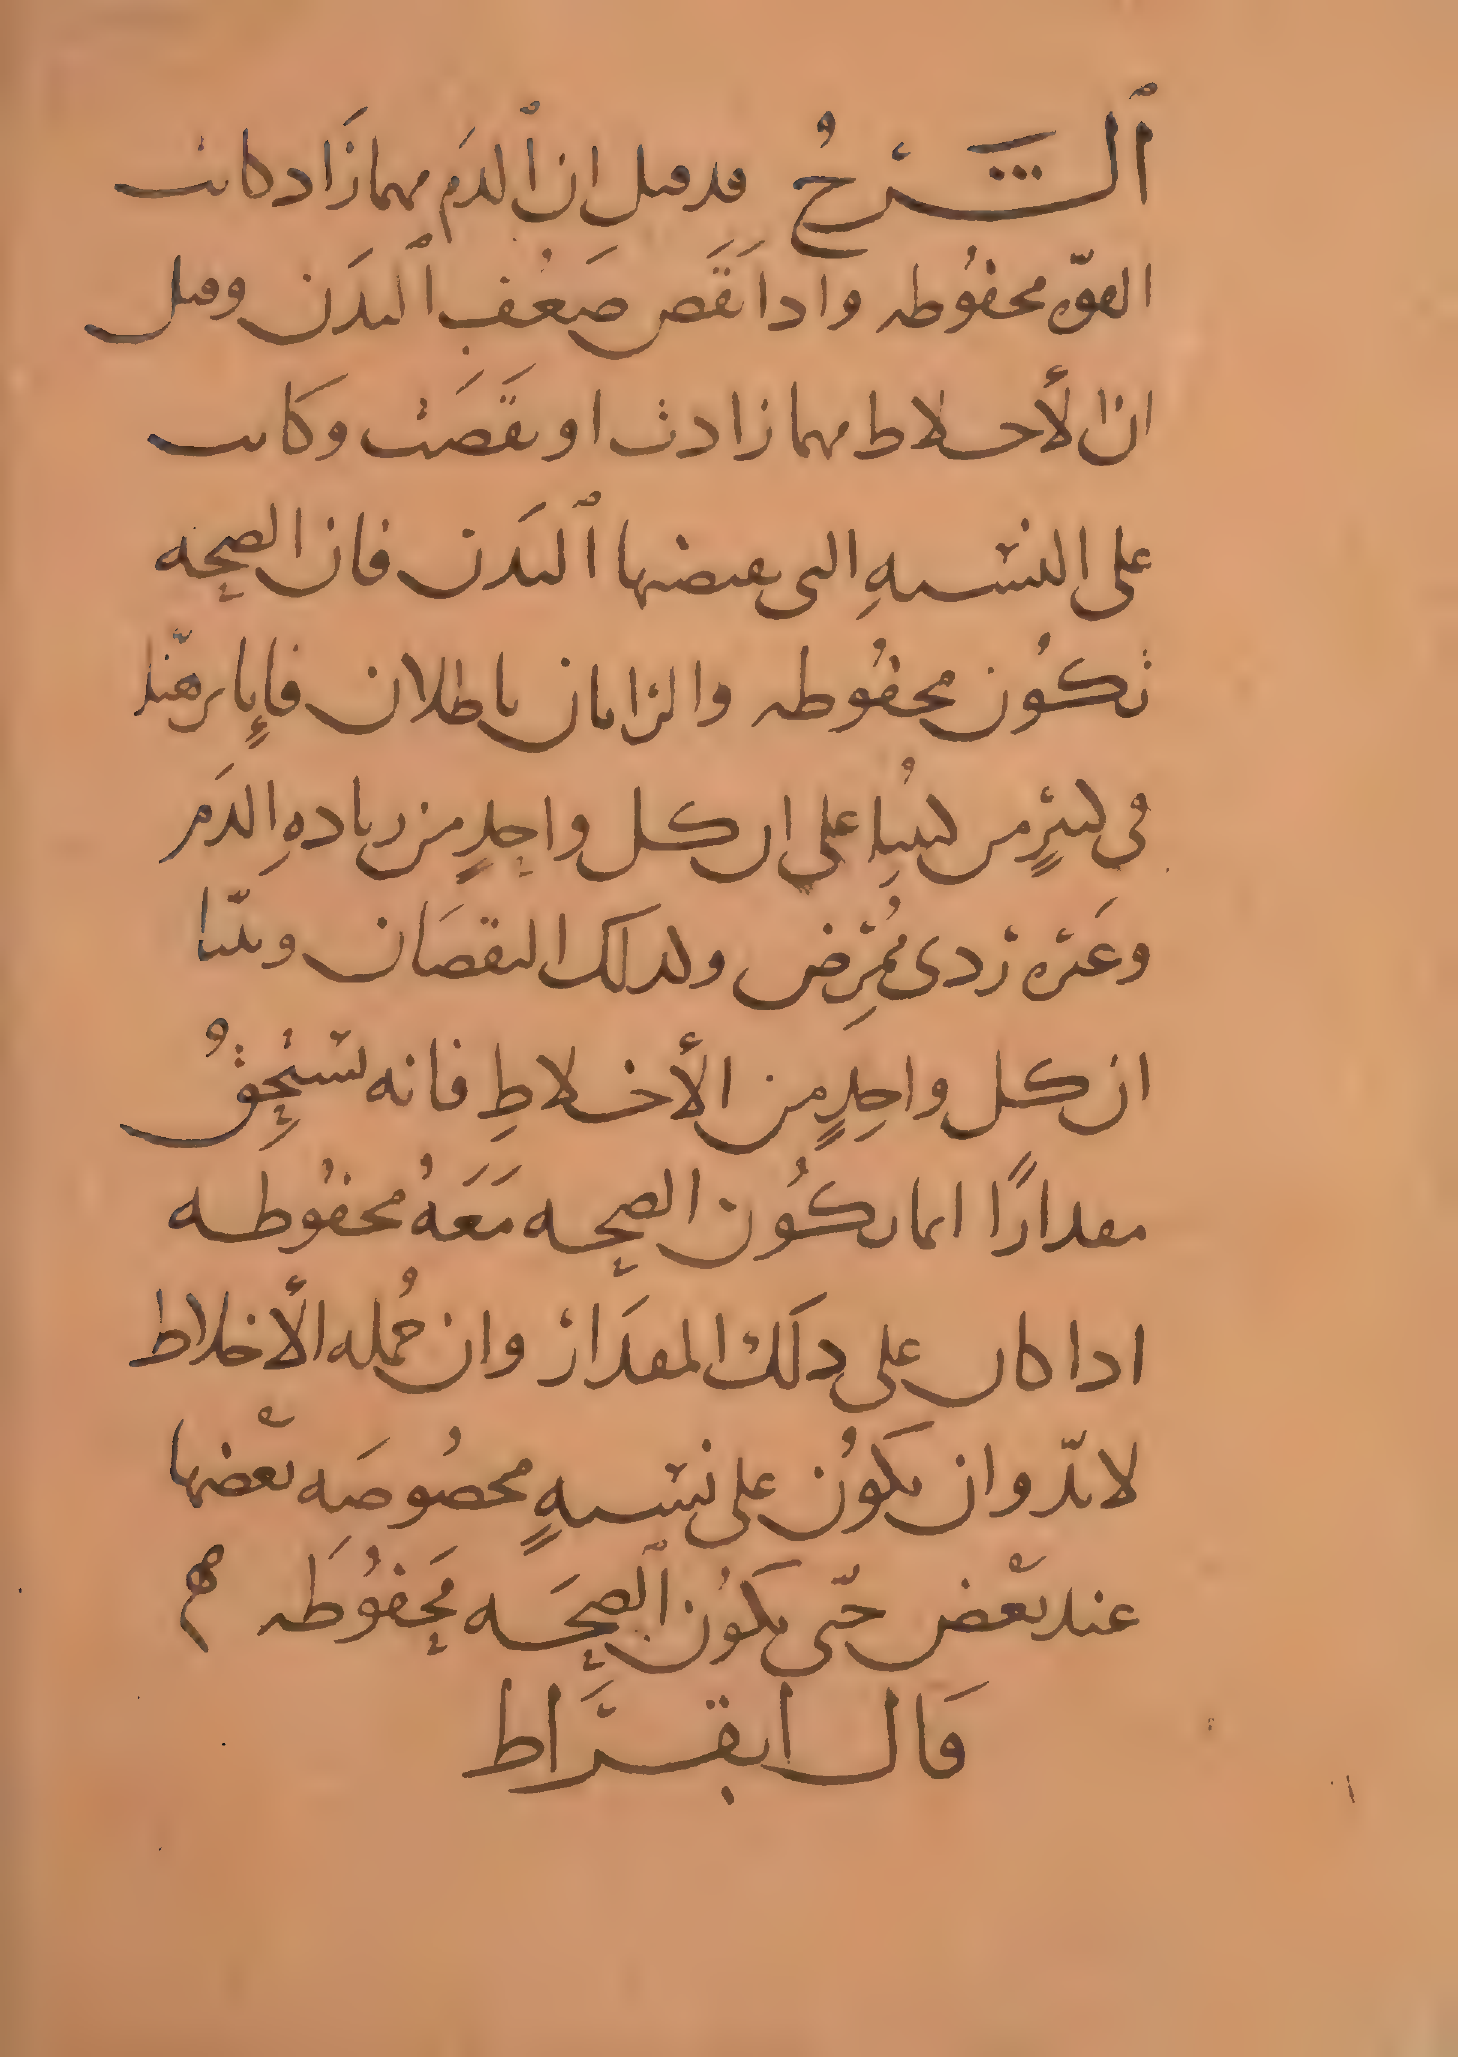 ٱلشَّرْحُ قد قيل ان ٱلدَم مهما زَاد كانت
القوّه محفُوظه واذا نَقَص ضَعُف ٱلبدَن وقيل
ان الأخلاط مهما زادت او نقَصَت وكانت
على النسبهِ التى يقتضيها ٱلبَدَن فان الصِحه
تكُون محفُوظه والرايان باطلان فإِنا برهنّا
فى كثيرٍ من كتبُنِا على ان كل واحِدٍ من زيادهِ الدَم
وغَيْره رَدى مُمْرِض وكذلك النقصَان وبيّنا
ان كل واحِدٍ من الأخلاطِ فانه يَسْتحِقُ
مقدارًا انما تكُون الصِحه مَعَهُ محفُوظه
اذا كان على ذلَك المقدَار وان جُمله الأخلاط
لا بدّ وان تكَوُن على نسبهٍ مخصُوصَه بعْضها
عند بعْض حتّى تكَوُن ٱلصِحَه مَحفُوظَه
قَال ابقرَاط